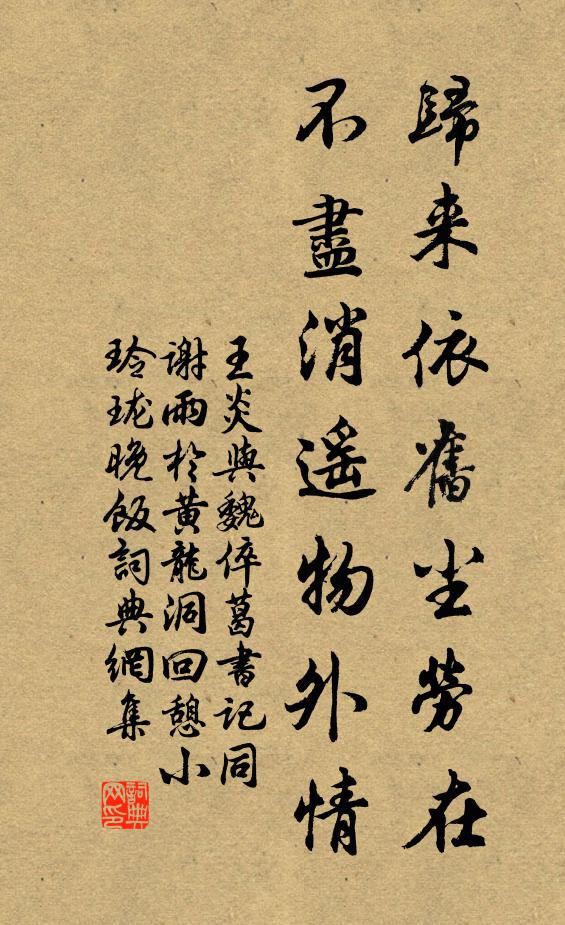 歸来依舊尘勞在
不盡消遥物外情
王炎與魏倅葛書記同
谢雨於黄龍洞回憩小
玲珑晚飯詞典網集
詞典
网印